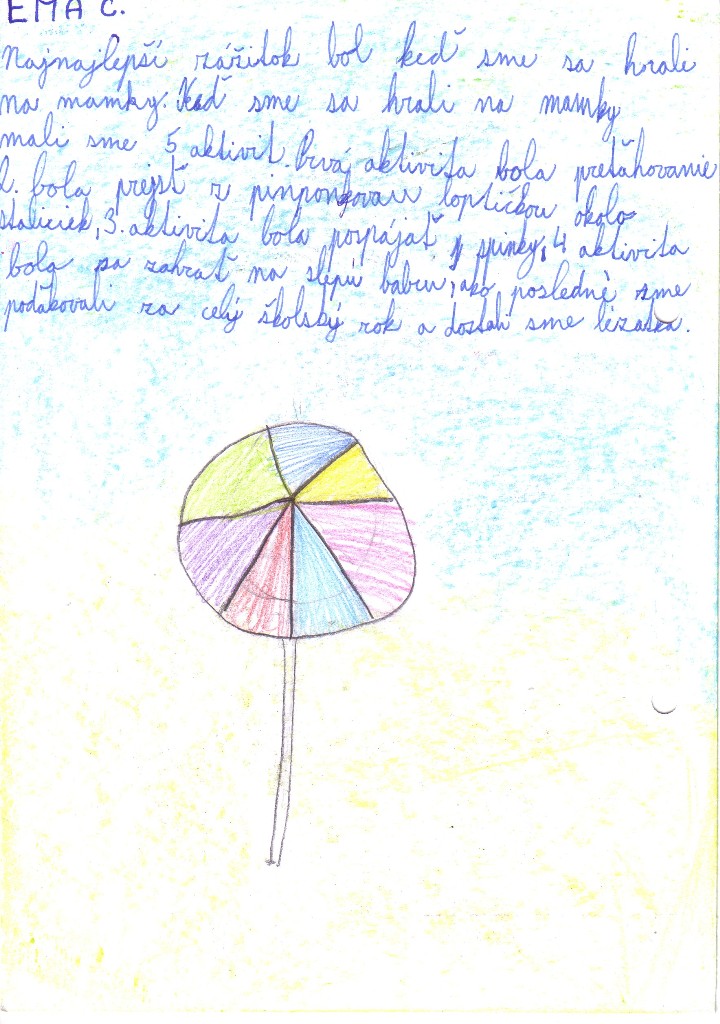 EMA C.
Najnajlepší zážitok bol keď sme sa hrali
na mamky. Keď sme sa hrali na mamky
mali sme 5 aktivit. Prvá aktivita bola preťahovanie
2. bola prejsť z pinpongovou loptičkou okolo
stoličiek, 3. aktivita bola pozpájať spinky, 4 aktivita
bola sa zahrať na slepú babu, ako posledné sme
poďakovali za celý školský rok a dostali sme lízatka.